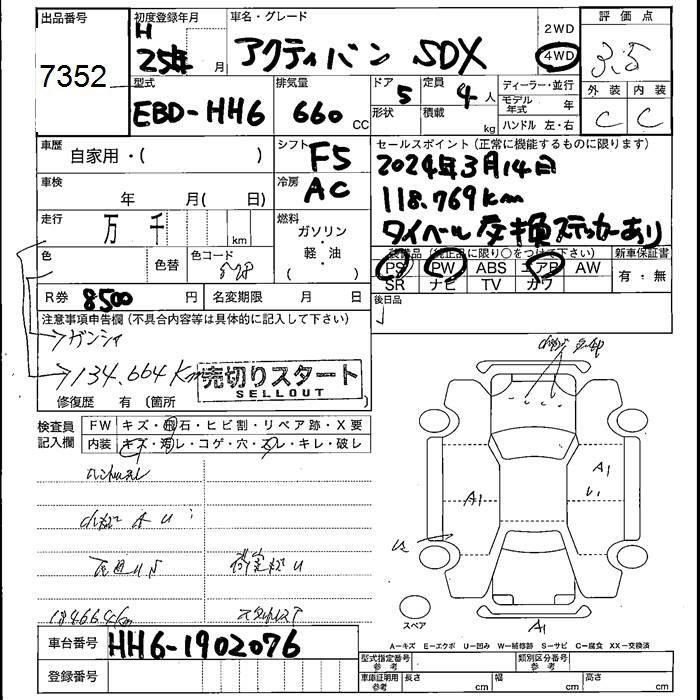 出品番号
7352
初度登録年月
H
25年 月
車名・グレード
アクティバン SDX
2WD
4WD
評価点
3.5
外装 内装
C C
型式
EBD-HH6
排気量
660 CC
ドア
5
形状
定員
4 人
積載
kg
ディーラー・並行
モデル年式 年
ハンドル 左・右
車歴
自家用・( )
シフト
F5
セールスポイント(正常に機能するものに限ります)
2024年3月14日
118.769km
タイベール 交換ステッカーあり
車検
年 月( 日)
冷房
AC
走行
万 千 km
燃料
ガソリン
・
軽・油
・
( )
色
色替
色コード
装備品 (純正品に限り○をつけて下さい)
PS PW ABS エアB AW
SR ナビ TV カワ
新車保証書
有:無
R券 8500 円
名変期限 月 日
後日品
注意事項申告欄(不具合内容等は具体的に記入して下さい)
ゲンシャ
134.664km
売切りスタート
SELLOUT
修復歴 有(箇所 )
検査員
記入欄
FW キズ・飛石・ヒビ割・リペア跡・X要
内装 キズ・汚レ・コゲ・穴・スレ・キレ・破レ
A1
A1
A1
スペア
A=キズ E=エクボ U=凹み W=補修跡 S=サビ C=腐食 XX=交換済
車台番号 HH6-1902076
登録番号
型式指定番号
参考
類別区分番号
参考
車庫証明用
参考
長さ cm
幅 cm
高さ cm